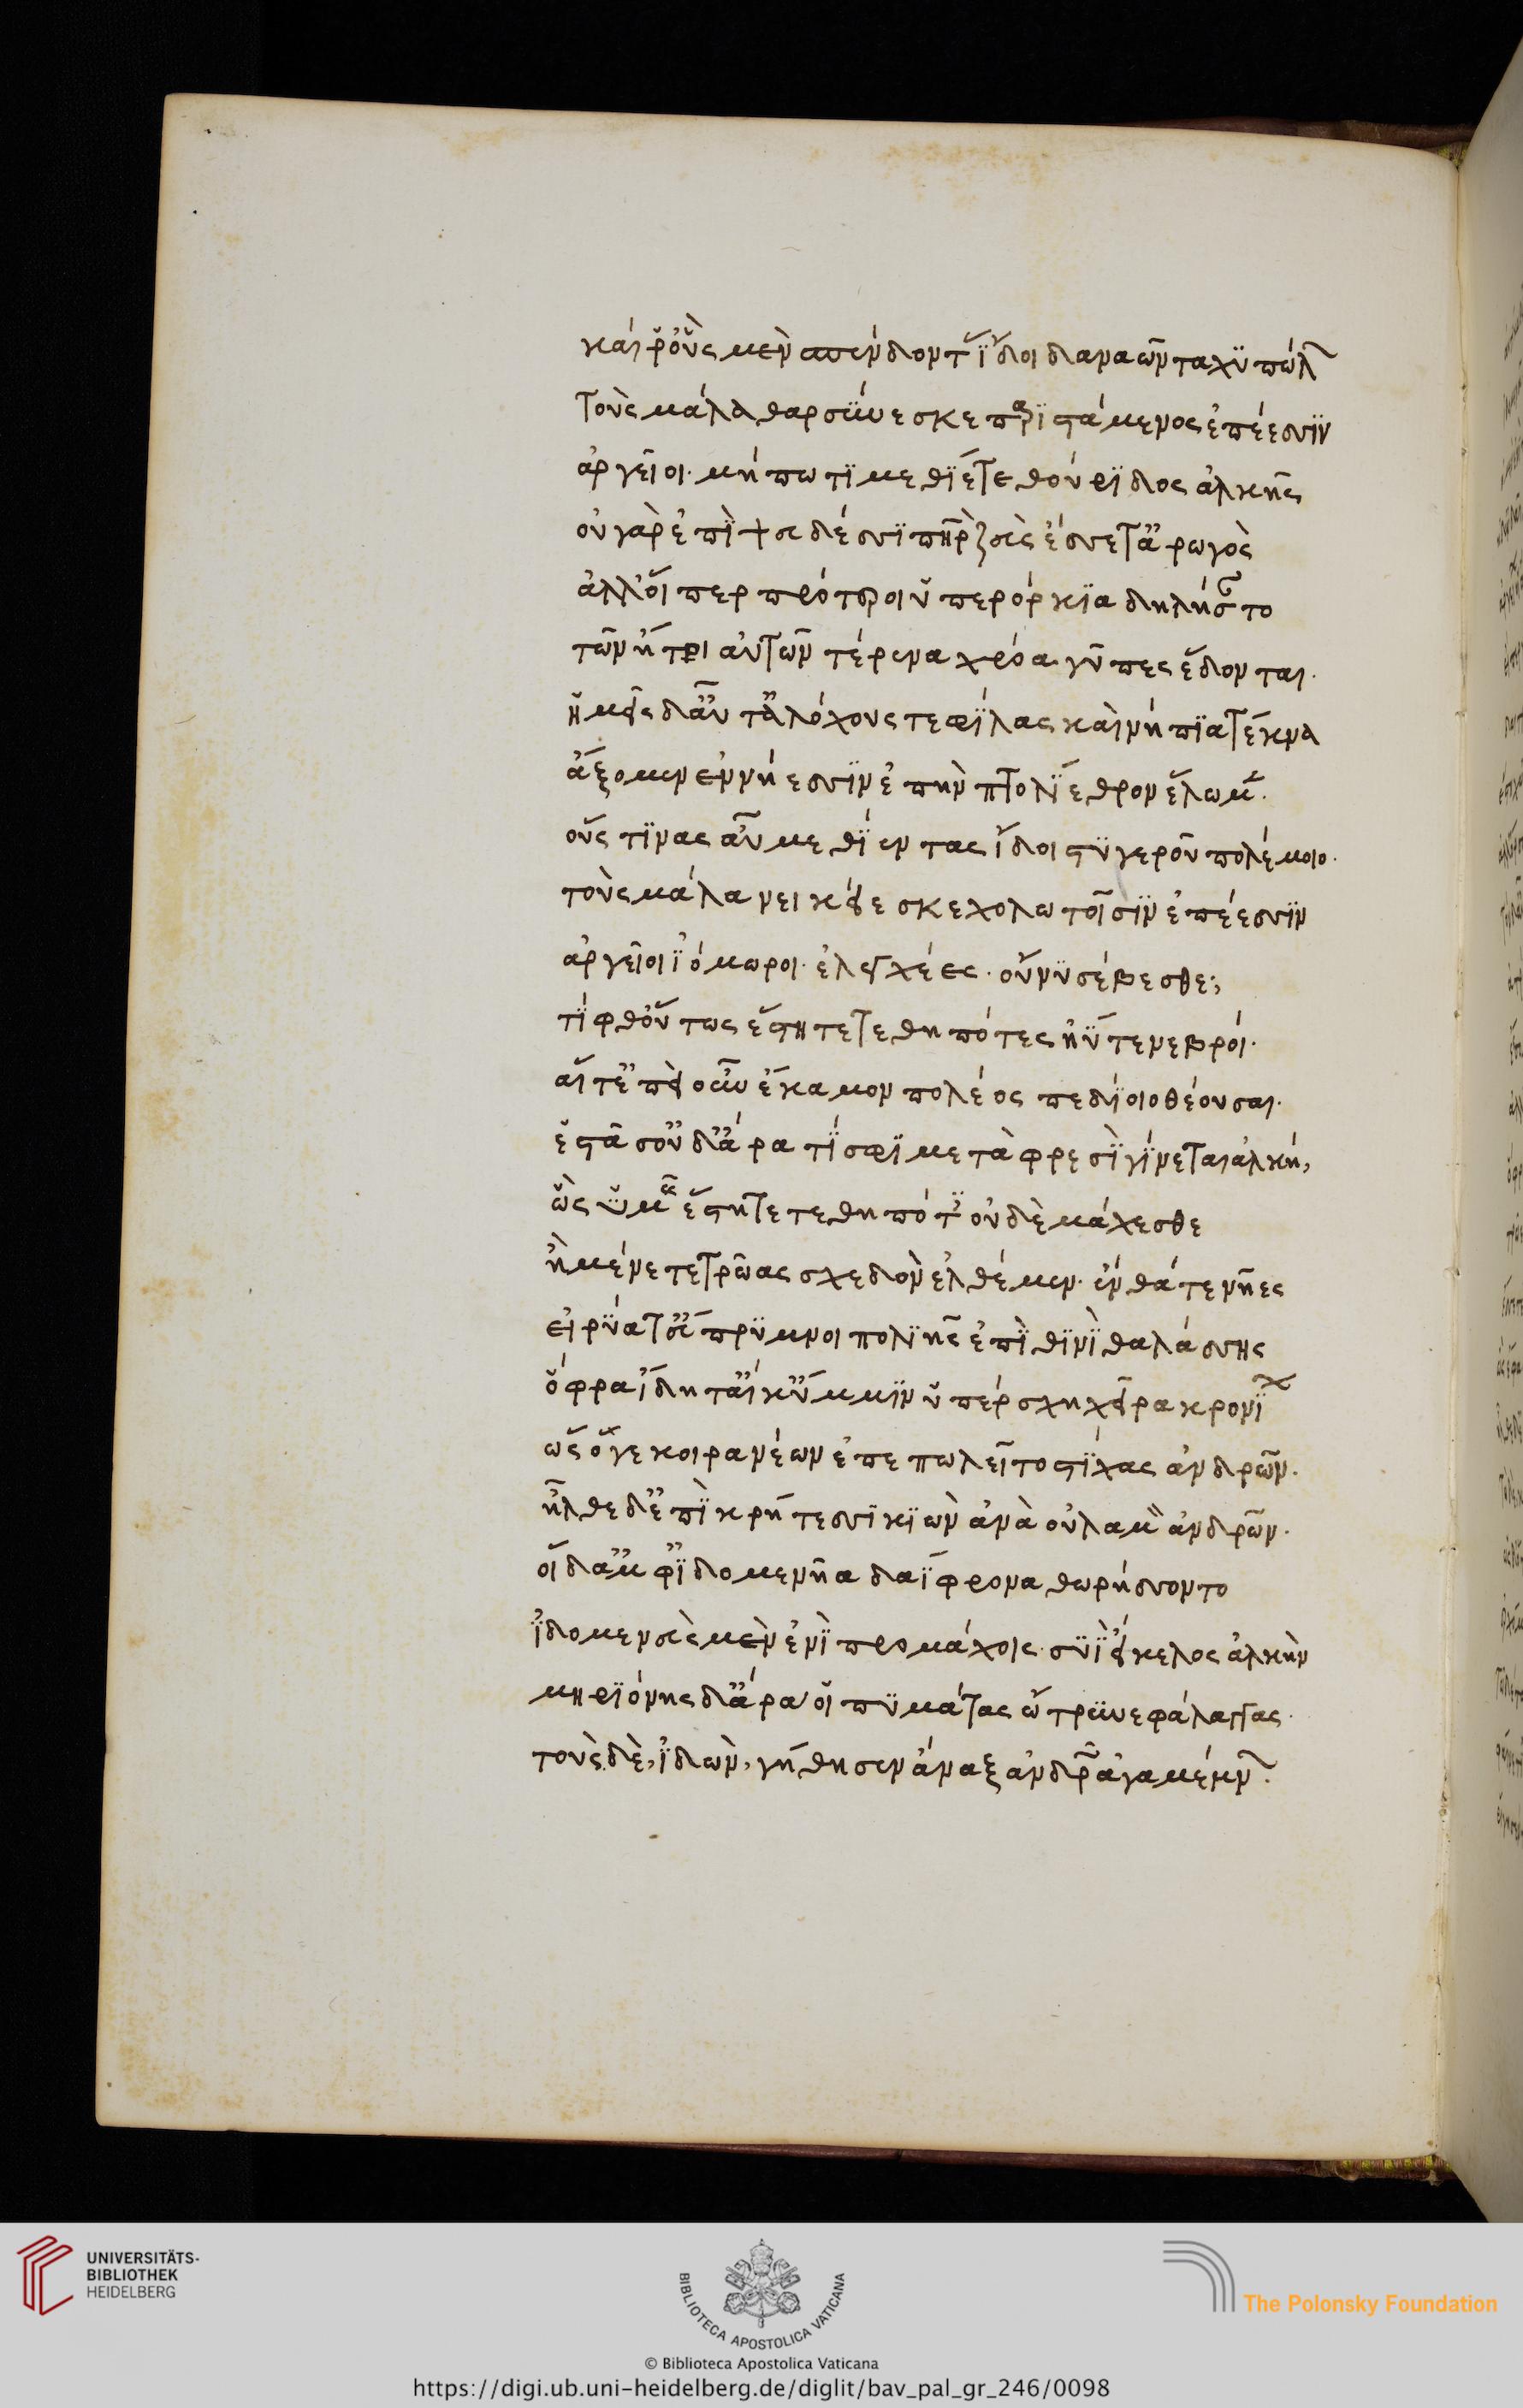 καί ῥ' οὓς μὲν σπεύδοντ' ἴδοι δαναῶν ταχυπώλων
τοὺς μάλα θαρσύνεσκε παριστάμενος ἐπέεσσιν
ἀργεῖοι. μήπω τι μεθίετε θούριδος ἀλκῆς
οὐ γὰρ ἐπὶ ψευδέσσι πατὴρ ζεὺς ἔσσετ' ἀρωγὸς
ἀλλ' οἵπερ πρότεροι ὑπὲρ ὅρκια δηλήσαντο
τῶν ἤτοι αὐτῶν τέρενα χρόα γῦπες ἔδονται.
ἡμεῖς δ' αὖτ' ἀλόχους τε φίλας καὶ νήπια τέκνα
ἄξομεν ἐν νήεσσιν ἐπὴν πτολίεθρον ἕλωμεν.
οὕς τινας αὖ μεθιέντας ἴδοι στυγεροῦ πολέμοιο.
τοὺς μάλα νεικείεσκε χολωτοῖσιν ἐπέεσσιν
ἀργεῖοι ἰόμωροι. ἐλεγχέες. οὔ νυ σέβεσθε;
τίφθ' οὕτως ἔστητε τεθηπότες ἠΰτε νεβροί.
αἵ τ' ἐπεὶ οὖν ἔκαμον πολέος πεδίοιο θέουσαι.
ἑστᾶσ' οὐδ' ἄρα τί σφι μετὰ φρεσὶ γίνεται ἀλκή,
ὣς ὑμεῖς ἔστητε τεθηπότες οὐδὲ μάχεσθε
ἢ μένετε τρῶας σχεδὸν ἐλθέμεν. ἔνθά τε νῆες
εἰρύατ' εὔπρυμνοι πολιῆς ἐπὶ θινὶ θαλάσσης
ὄφρα ἴδητ' αἴ κ' ὔμμιν ὑπέρσχη χεῖρα κρονίων
ὣς ὅγε κοιρανέων ἐπεπωλεῖτο στίχας ἀνδρῶν.
ἦλθε δ' ἐπὶ κρήτεσσι κιὼν ἀνὰ οὐλαμὸν ἀνδρῶν.
οἱ δ' ἀμφ' ἰδομενῆα δαΐφρονα θωρήσσοντο
ἰδομενεὺς μὲν ἐνὶ προμάχοις. συῒ εἴκελος ἀλκὴν
μηριόνης δ' ἄρα οἱ πυμάτας ὤτρυνε φάλαγγας.
τοὺς δὲ, ἰδὼν, γήθησεν ἄναξ ἀνδρῶν ἀγαμέμνων.
UNIVERSITÄTS-
BIBLIOTHEK
HEIDELBERG
BIBLIOTECA APOSTOLICA VATICANA
The Polonsky Foundation
© Biblioteca Apostolica Vaticana
https://digi.ub.uni-heidelberg.de/diglit/bav_pal_gr_246/0098